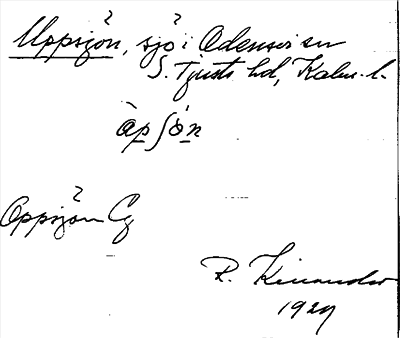 Uppsjön, sjö i Odensvi sn
S. Tjusts hd, Kalm. l.
àpʃön
Oppsjön Cg
R. Kinander
1929